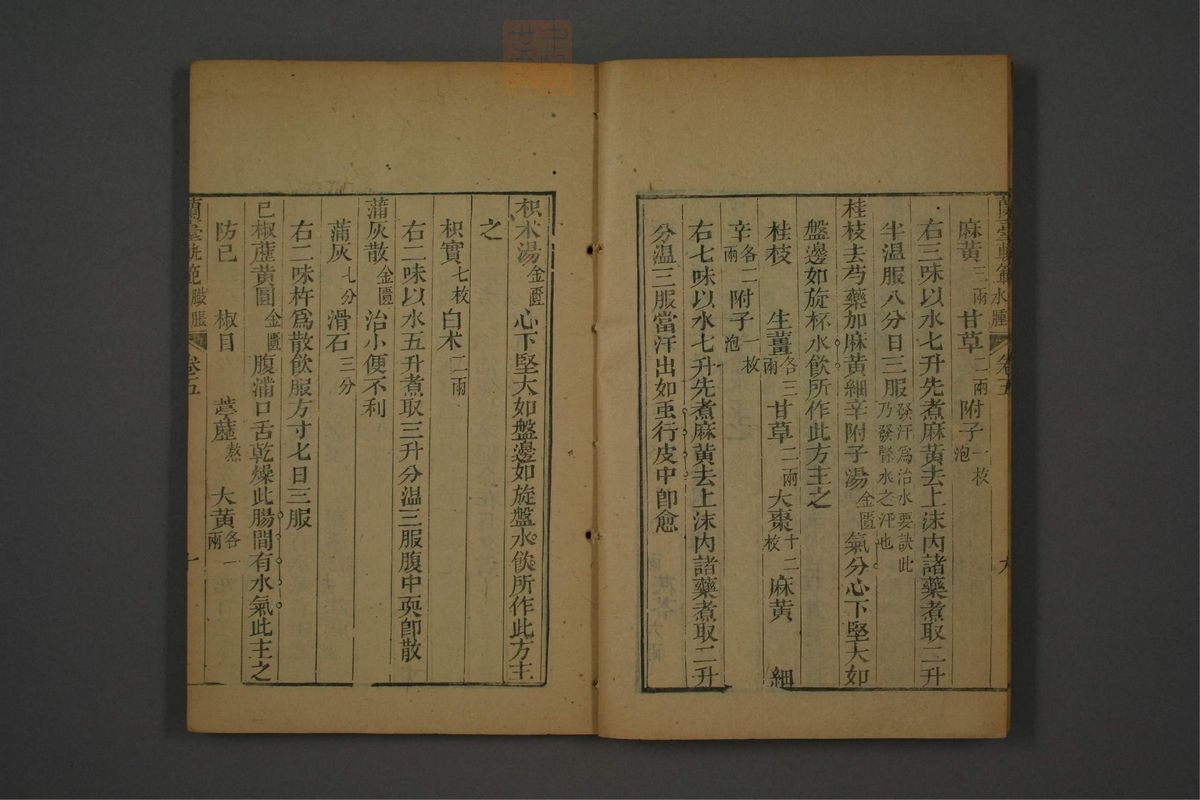 蘭臺軌範 水腫 卷五 九
麻黃三兩 甘草二兩 附子一枚泡
右三味以水七升先煮麻黃去上沫內諸藥煮取二升
半溫服八分日三服發汗為治水要訣此乃發腎水之汗也
桂枝去芍藥加麻黃細辛附子湯金匱 氣分心下堅大如
盤邊如旋杯水飲所作此方主之
桂枝 生薑各三兩 甘草二兩 大棗十二枚 麻黃 細
辛各二兩 附子一枚泡
右七味以水七升先煮麻黃去上沫內諸藥煮取二升
分溫三服當汗出如虫行皮中卽愈
枳朮湯金匱 心下堅大如盤邊如旋盤水飲所作此方主
之
枳實七枚 白朮二兩
右二味以水五升煮取三升分溫三服腹中耎卽散
蒲灰散金匱 治小便不利
蒲灰七分 滑石三分
右二味杵為散飲服方寸匕日三服
己椒藶黃圓金匱 腹滿口舌乾燥此腸間有水氣此主之
防己 椒目 葶藶熬 大黃各一兩
蘭臺軌範 臌脹 卷五 十